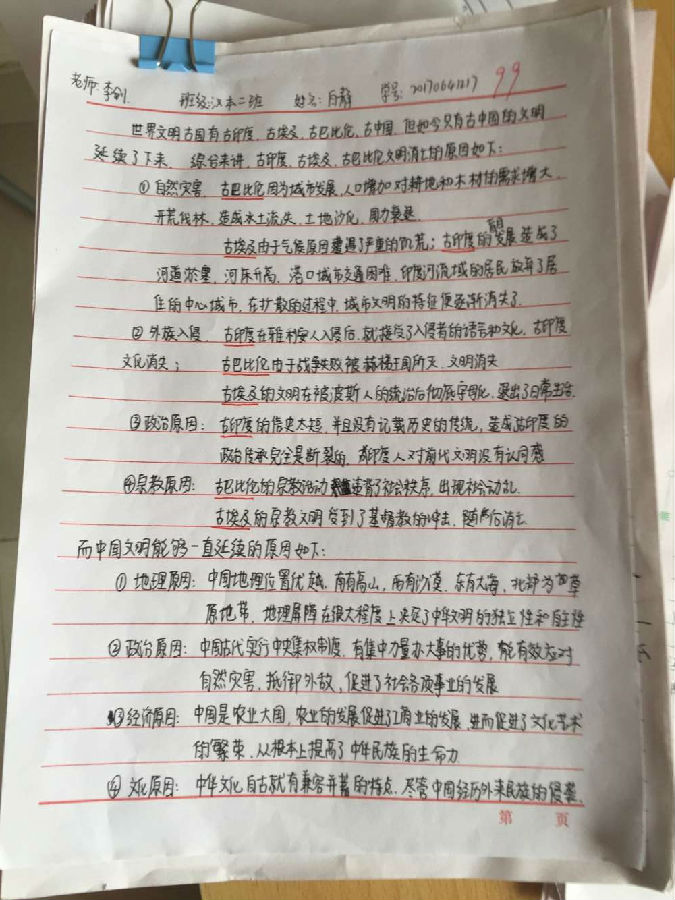 老师:李剑 班级:汉本二班 姓名:白静 学号:20170641217 99
世界文明古国有古印度、古埃及、古巴比伦、古中国,但如今只有古中国的文明
延续了下来。综合来讲,古印度、古埃及、古巴比伦文明消亡的原因如下:
①自然灾害:古巴比伦因为城市发展,人口增加对耕地和木材的需求增大,
开荒伐林,造成水土流失,土地沙化,国力衰退。
古埃及由于气候原因遭遇了严重的饥荒;古印度的发展造成了
河道淤塞,河床升高,港口城市交通困难,印度河流域的居民放弃了居
住的中心城市,在扩散的过程中,城市文明的特征便逐渐消失了.
②外族入侵:古印度在雅利安人入侵后,就接受了入侵者的语言和文化,古印度
文化消失; 古巴比伦由于战争失败被赫梯王国所灭,文明消失
古埃及的文明在被波斯人的统治后彻底字母化,退出了日常生活.
③政治原因:古印度的信史太短,并且没有记载历史的传统,造成古印度的
政治传承完全是断裂的,印度人对前代文明没有认同感
④宗教原因:古巴比伦的宗教活动违背了社会秩序,出现社会动乱.
古埃及的宗教文明受到了基督教的冲击,随之后消亡.
而中国文明能够一直延续的原因如下:
①地理原因:中国地理位置优越,南有高山,西有沙漠,东有大海,北部为草
原地带,地理屏障在很大程度上决定了中华文明的独立性和自主性
②政治原因:中国古代实行中央集权制度,有集中力量办大事的优势,能有效应对
自然灾害,抵御外敌,促进了社会各项事业的发展
③经济原因:中国是农业大国,农业的发展促进了工商业的发展,进而促进了文化艺术
的繁荣,从根本上提高了中华民族的生命力.
④文化原因:中华文化自古就有兼容并蓄的特点,尽管中国经历外来民族的侵袭,
第 页